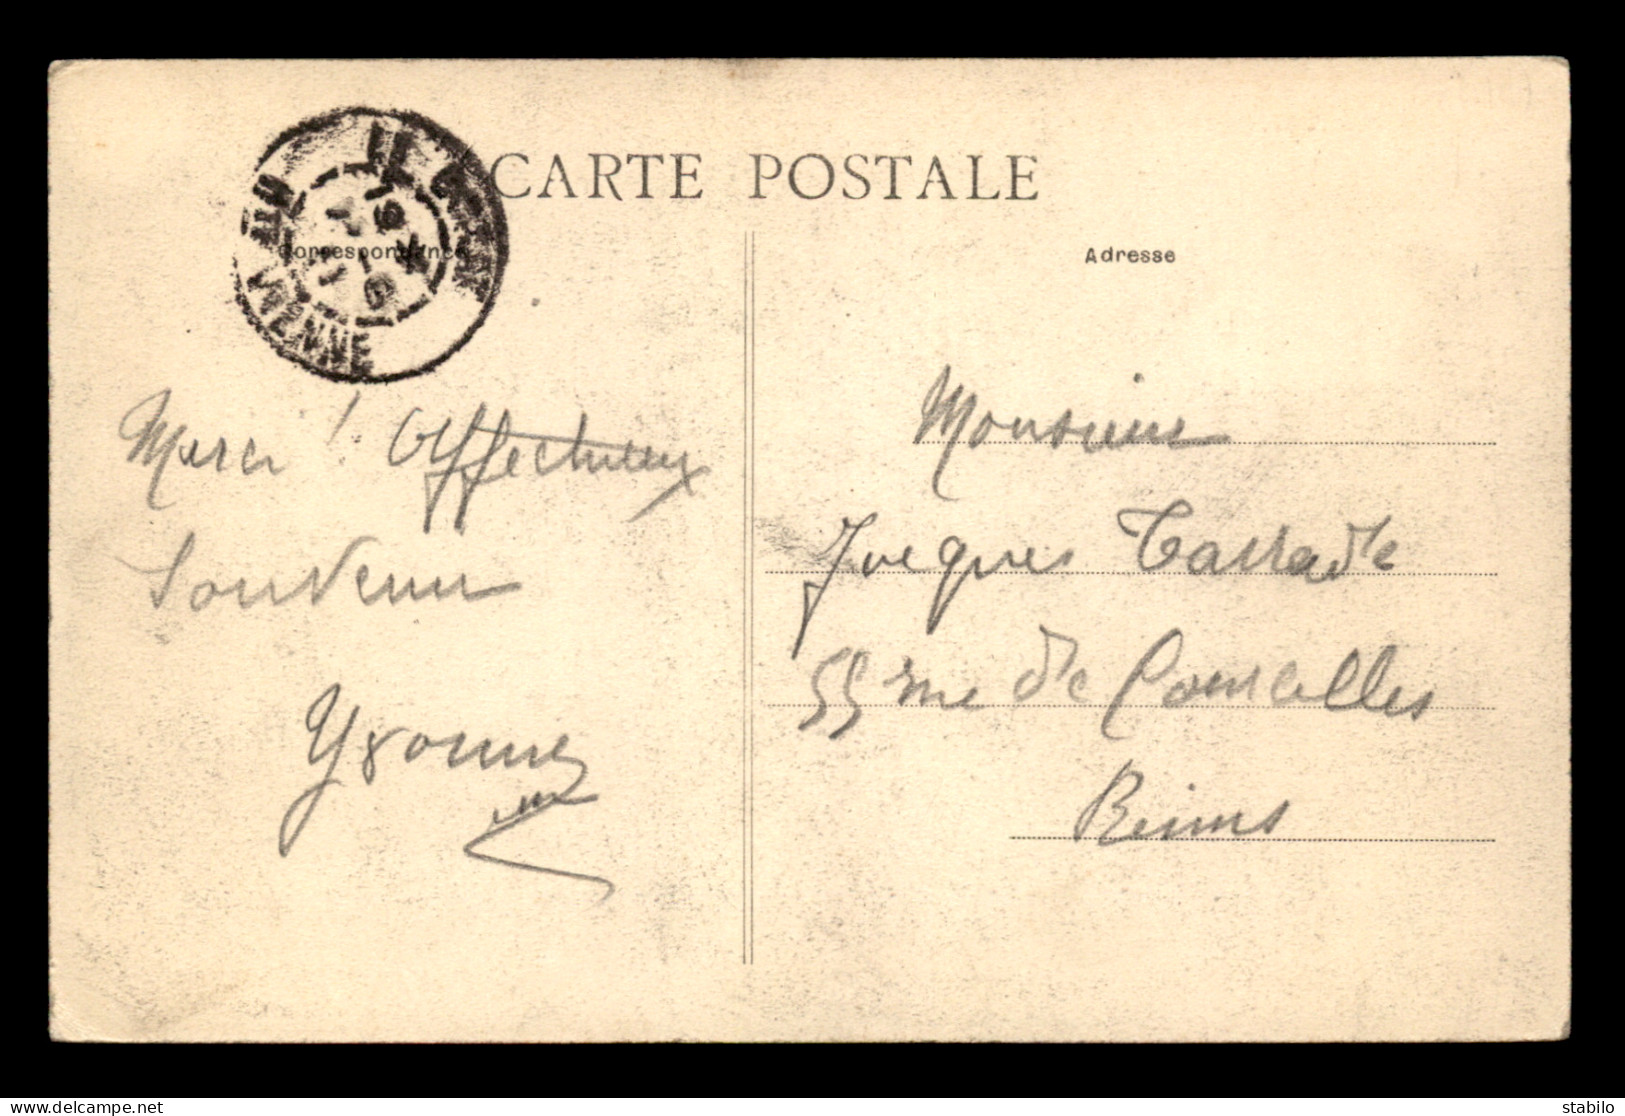 CARTE POSTALE
Correspondance
Adresse
VIENNE
Merci ! Affectueux
Souvenir
Yvonne
Monsieur
Jacques
55 rue de Courcelles
Reims
www.delcampe.net
stabilo